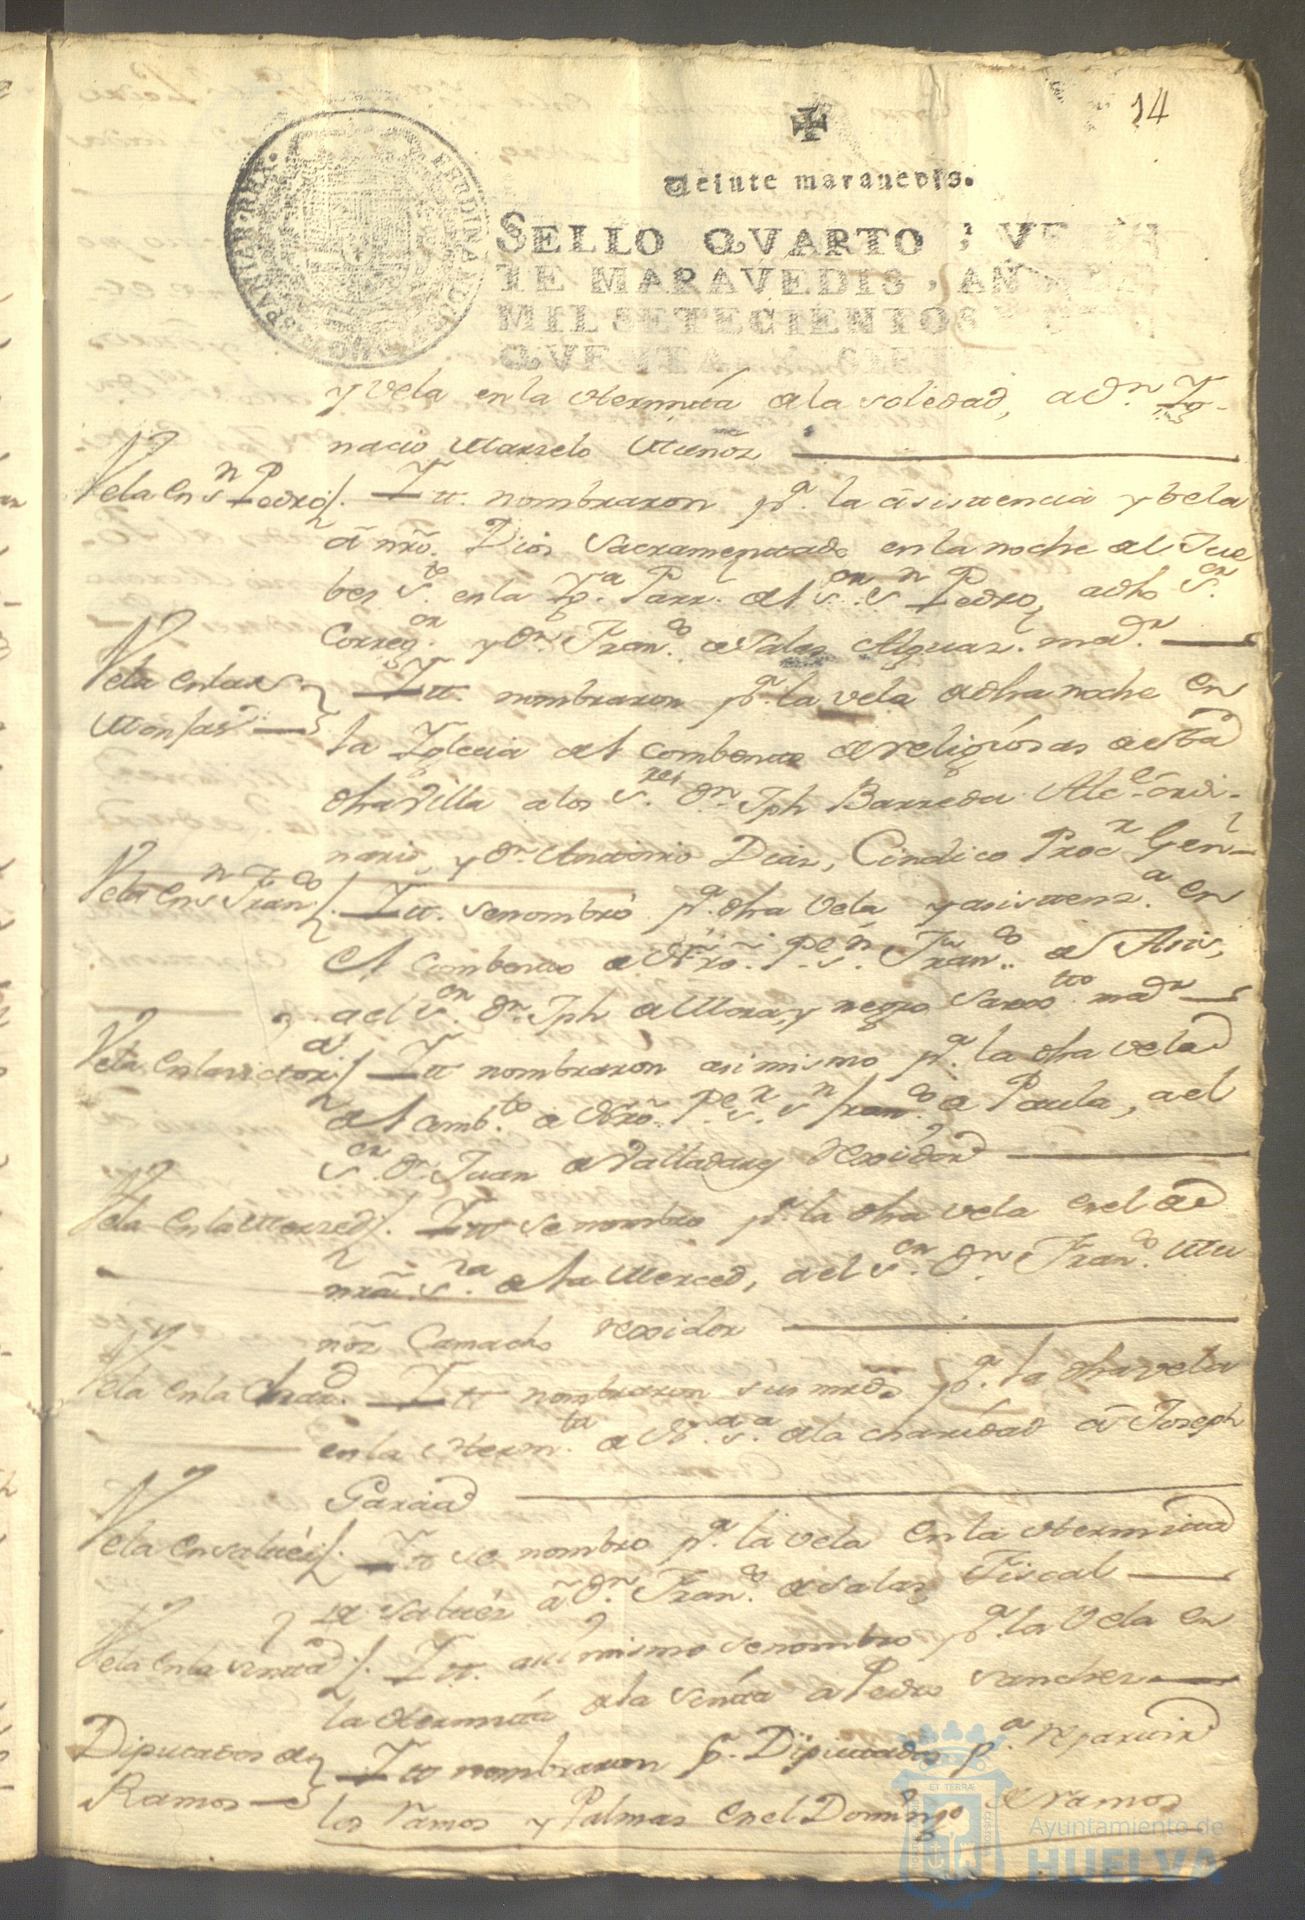 14
Veinte maravedis.
SELLO QVARTO, VE
TE MARAVEDIS, AÑ
MIL SETECIENTOS
QVENTA
y vela en la Hermita de la Soledad, a Dn. Ig-
nacio Marzelo Muñoz
Vela en Sn. Pedro
Itt. nombraron pa. la asistencia y bela
a nro. Dios Sacramentado en la noche del Jue
bes So. en la Yga. Parr. del Sor. Sn. Pedro, a dho Sor.
Correg.or y Dn. Franco. de Salas Alguaz. mar.
Vela en las
Monjas
Itt. nombraron pa. la vela de dha noche en
la Yglecia del combento de religiosas de Sta
dha Villa a los Sres. Dn. Jph Barreda Alce. ordi-
nario, y Dn. Antonio Dias, Cindico Procr. Gen-
Vela en Sn. Franco
Itt. se nombró pa. dha Vela y asistenza. en
el combento de Nro. Pe. Sn. Franco. de Asis,
a el Sor. Dn. Jph de Mora, y negro Sarxto. mar.
Vela en la victora.
Itt nombraron asimismo pa. la dha vela
del comb.to de Nro. Pe. Sr. Sn. Franco. de Paula, a el
Sor. Dn. Juan de Valladares rexidor
Vela en la Merzed
Itt se nombro pa. la dha vela en el de
nra. Sra. de la Merced, a el Sor. Dn. Franco. Mu
ñoz Camacho rexidor
Vela en la Charda.
Itt nombraron sus mrds. pa. la dha vela
en la Herm.ta de Na. Sa. de la charidad a Joseph
Garcia
Vela en saluds
Itt se nombro pa. la vela en la Hermita
de saluds a Dn. Franco. de Salas Fiscal
Vela en la sinta
Itt. asimismo se nombro pa. la Vela en
la Hermita de la Sinta a Pedro Sanches
Diputados de
Ramos
Itt nombraron pr. Diputados pa. repartir
los ramos y Palmas en el Domingo de ramos
Ayuntamiento de
HUELVA